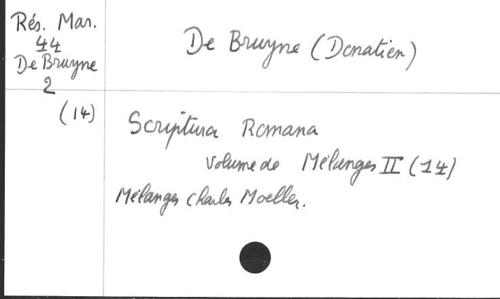 Rés. Mar.
44
De Bruyne
2
(14)
De Bruyne (Donatien)
Scriptura Romana
Volume de Mélanges II (14)
Mélanges Charles Moeller.